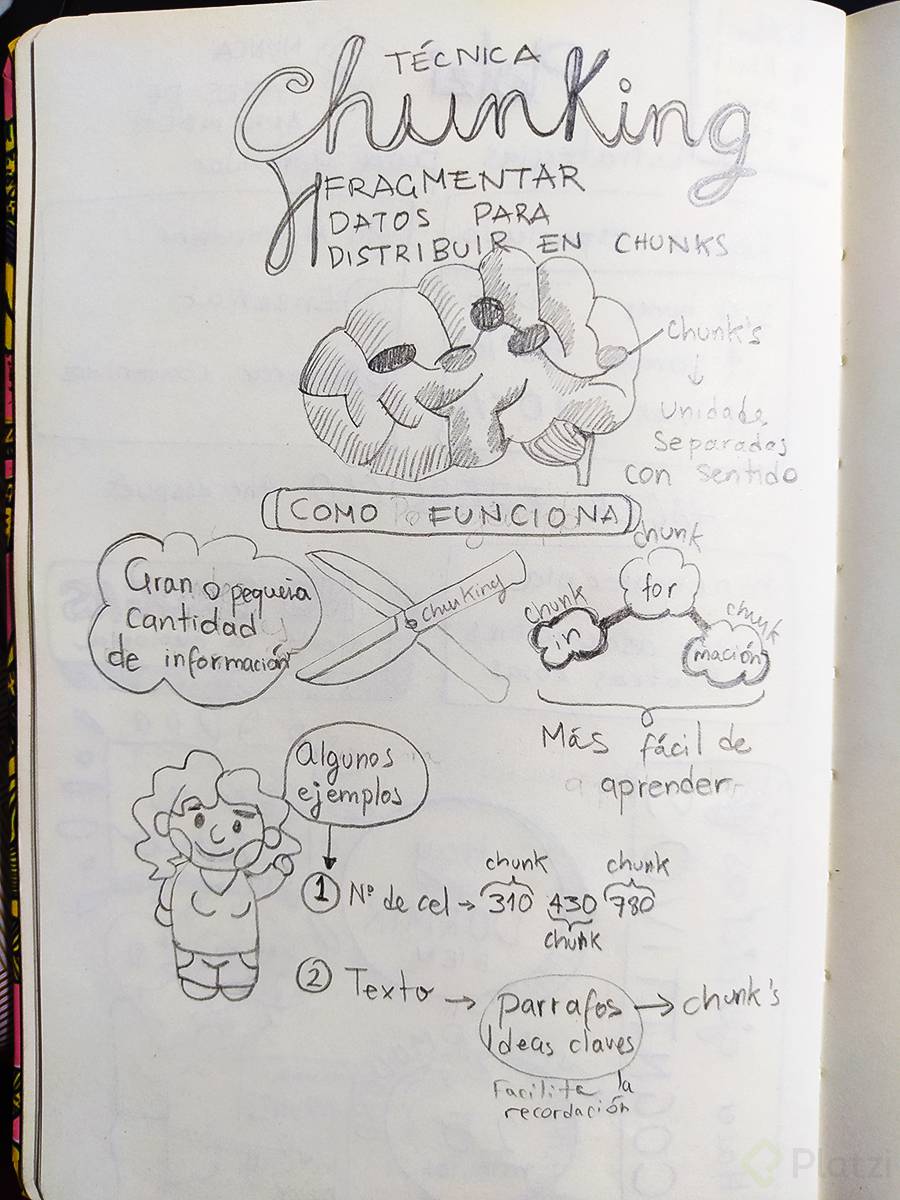 TÉCNICA
Chunking
FRAGMENTAR
DATOS PARA
DISTRIBUIR EN CHUNKS
chunk's
Unidades
Separadas
con sentido
COMO FUNCIONA
Gran o pequeña
cantidad
de información
chunking
chunk
in
chunk
for
chunk
mación
Más fácil de
aprender
Algunos
ejemplos
1 Nº de cel → 310 430 780
chunk
chunk
chunk
2 Texto → parrafos → chunk's
Ideas claves
Facilita la
recordación
Platzi